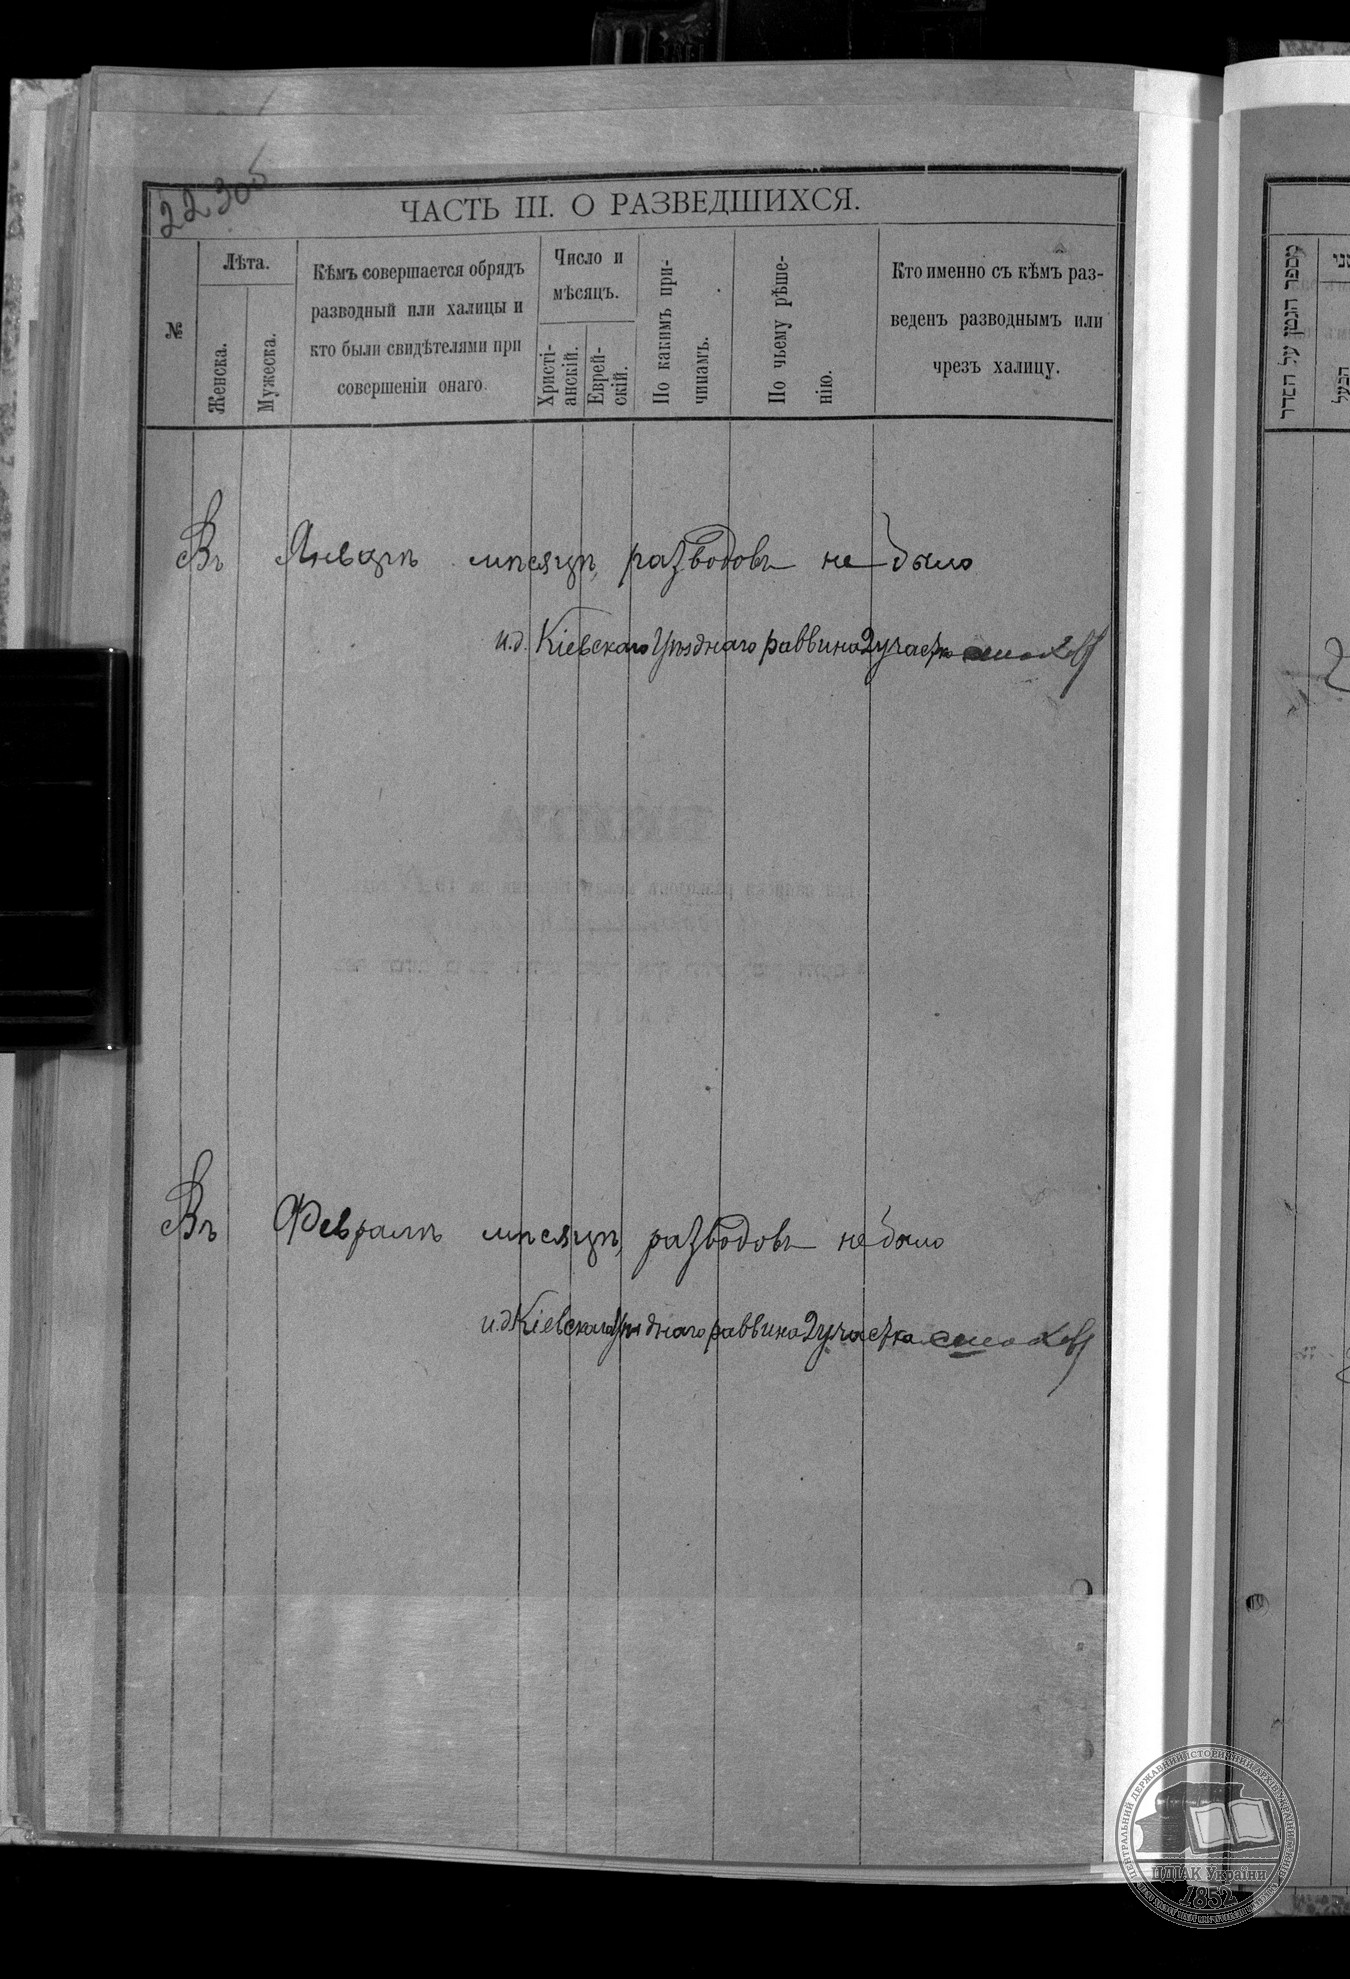 22 305
ЧАСТЬ III. О РАЗВЕДШИХСЯ.
№
Лѣта.
Женска.
Мужеска.
Кѣмъ совершается обрядъ
разводный или халицы и
кто были свидѣтелями при
совершеніи онаго.
Число и
мѣсяцъ.
Христі-
анскій.
Еврей-
скій.
По какимъ при-
чинамъ.
По чьему рѣше-
нію.
Кто именно съ кѣмъ раз-
веденъ разводнымъ или
чрезъ халицу.
Въ Январѣ мѣсяцѣ разводовъ не было
и.д. Кіевскаго Уѣзднаго раввина 2 участка
Въ Февралѣ мѣсяцѣ разводовъ не было
и.д Кіевскаго Уѣзднаго раввина 2 участка
מספר הנמן על הסדר
הבעל
ЦЕНТРАЛЬНИЙ ДЕРЖАВНИЙ ІСТОРИЧНИЙ АРХІВ УКРАЇНИ
ЦДІАК України
1852